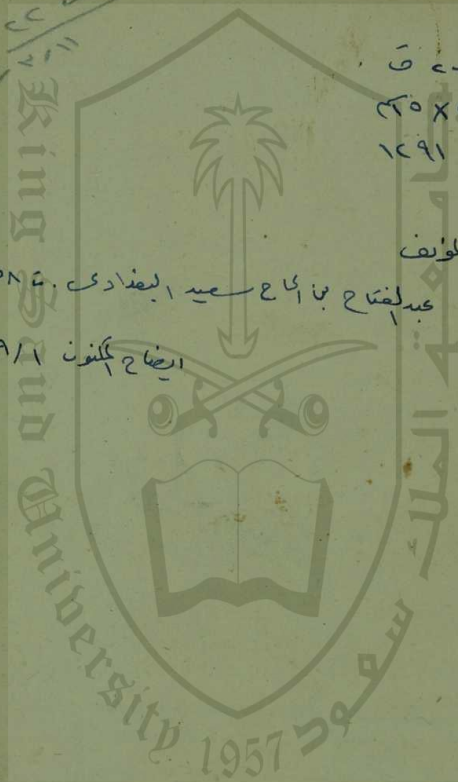 ٢٢
٢،١١
٢٠ ق
× ٢١٥
١٢٩١
المؤلف
عبدالفتاح بن الحاج سعيد البغدادي . ت
ايضاح المكنون ١/
King Saud University
1957
جامعة الملك سعود